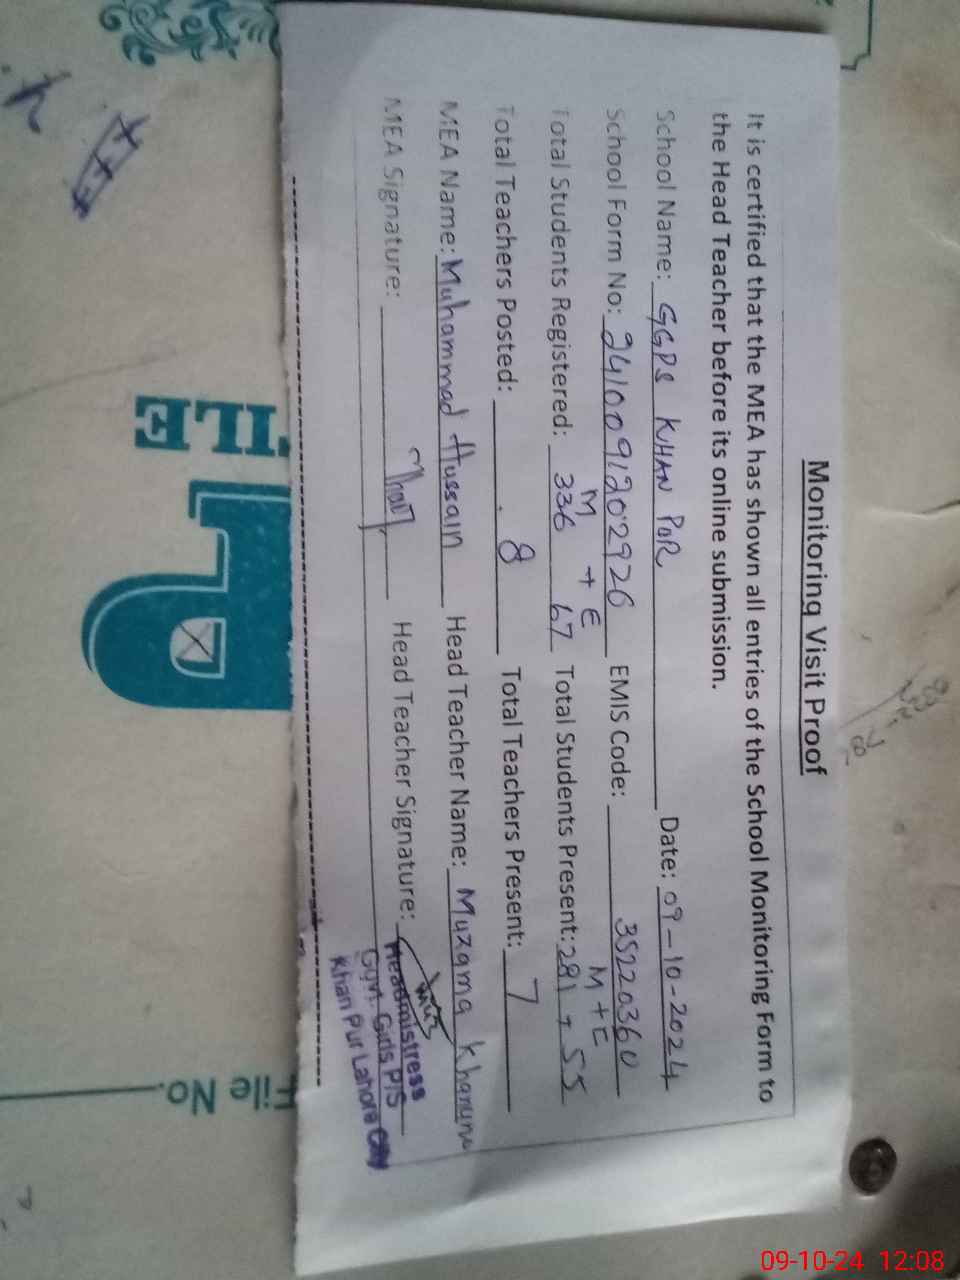 Monitoring Visit Proof
It is certified that the MEA has shown all entries of the School Monitoring Form to
the Head Teacher before its online submission.
School Name: GGPS KHAN PUR Date: 09-10-2024
M + E M + E
School Form No: 2410091202926 EMIS Code: 35220360
Total Students Registered: 336 67 Total Students Present: 281 + 55
Total Teachers Posted: 8 Total Teachers Present: 7
MEA Name: Muhammad Hussain Head Teacher Name: Muzama Khanum
MEA Signature: Head Teacher Signature:
Headmistress
Govt. Girls P/S
Khan Pur Lahore City
FILE
File No.
09-10-24 12:08